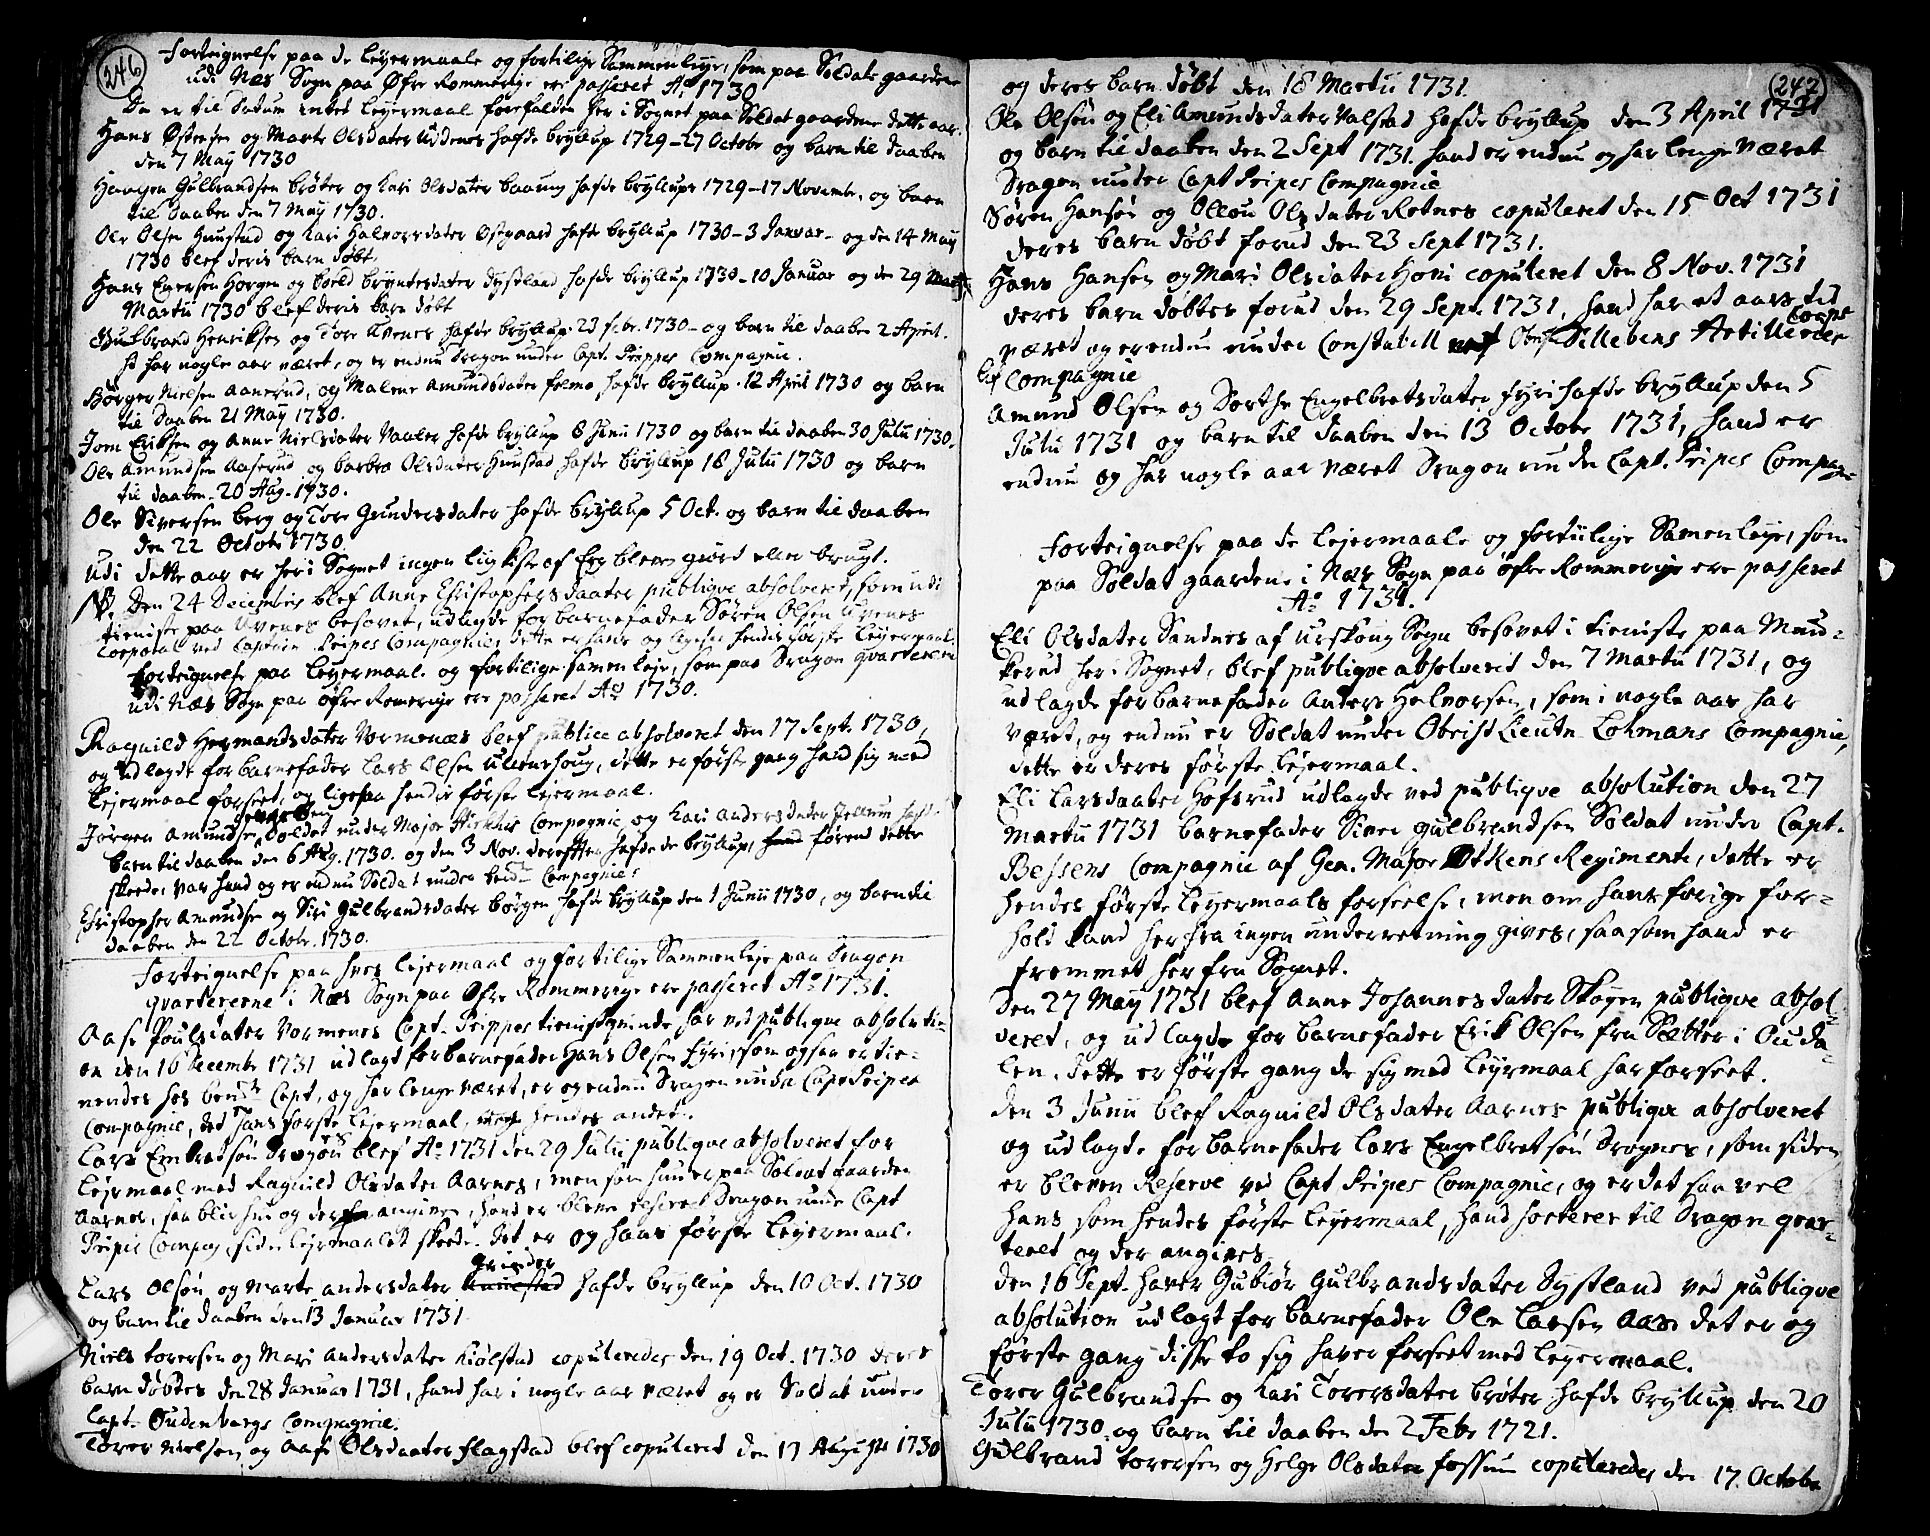 246
Forteignelse paa de Leyermaale og fortilige Sammenleye, som paa Soldate gaardene
udi Næs Sogn paa Øfre Rommerige ere passeret Aº 1730
Da er til Datum intet Leyermaal forefalden her i Sognet paa Soldat gaardene dette aar.
Hans Østensen og Marte Olsdater Uddenes hafde bryllup 1729-27 Octobr og barn til daaben
den 7 Maij 1730
Haagen Gulbrandsen brøter og Kari Olsdater hafde bryllups 1729-17 Novembr. og barn
til Daaben den 7 Maij 1730.
Ole Olsen Huustad og Kari Halvorsdater Østgaard hafde bryllup 1730-3 Januar- og den 14 Maij
1730 blef deris barn døbt.
Hans Horgen og bryntesdater Dystland hafde bryllup 1730-10 Januar og den 29
Martii 1730 blef deris barn døbt
Gulbrand Henriksen og Tore Evenes hafde bryllup 23 febr. 1730- og barn til daaben 2 April.
har nogle aar været, og er endnu Dragon under Capt. Prippes Compagnie.
Børger Nielsen Aanerud, og Malene Amundsdater hafde bryllup. 12 April 1730 og barn
til Daaben 21 Maij 1730.
Jom Eriksen og Anne Nielsdater Vaaler hafde bryllup 8 Junii 1730 og barn til daaben 30 Julii 1730.
Ole Amundsen Aaserud og barbra Olsdater Huustad hafde bryllup 18 Julii 1730 og barn
til daaben- 20 Aug. 1730.
Ole Siversen berg og Tore Gundersdater hafde bryllup 5 Oct. og barn til daaben
den 22 Octobr 1730.
Udi dette aar er her i Sognet ingen ligkiste af Eeg bleven giort eller brugt.
NB. Den 24 Decembris blef Anne Christophersdaater publique absolveret, som udi
tieniste paa Uvenes besovet, udlagde for barnefader Søren Olsen Uvenes
Corporal ved Captein Pripes Compagnie, dette er hans og hendes første Leyermaal.
Forteignelse paa Leyermaal og fortilige samenleje, som paa Dragon qvarteren
udi Næs Sogn paa øfre Romerige ere passeret Aº 1730.
Ragnild Hermandsdater Vormenæs blef publice absolveret den 17 Sept. 1730,
og udlagde for barnefader Lars Olsen Ullenshoug, dette er første gang hand sig med
Lejermaal forseet, og ligesaa hendis første lejermaal.
Jørgen Amundsen Soldat under Major Compagnie og Kari Andersdater hafde
barn til daaben den 6 Aug. 1730. og den 3 Nov. derefter hafde de bryllup, førend dette
skeede, var hand og er endnu Soldat under Compagnie:
Christopher Amundse og Siri Gulbrandsdater børgen hafde bryllup den 1 Junii 1730, og barn til
daaben den 22 Octobr. 1730.
Forteignelse paa hves lejermaal og fortilige Sammenleje paa Dragon
qvartererne i Næs Sogn paa Øfre Rommerige ere passeret Aº 1731.
Aase Poulsdater Vormenes Capt. Prippes tienistqvinde har ved publique absoluti-
on den 16 Decembr 1731 udlagt for barnefader Hans Olsen Fyri, som ogsaa er tie-
nendes hos bemte Capt, og har lenge været, er og endnu Dragon under Capt Pripes
Compagnie, det hans første Lejermaal, hendes andet.
Lars Dragon blef Aº 1731 den 29 Julii publique absolveret for
Lejermaal med Ragnild Olsdater Aarnes, men som hun er paa Soldat gaarden
Aarnes, saa blir hun og der angiven, hand er bleven reserve Dragon under Capt
Pripis Compag, siden lejermaalet skeede. Det er og hans første Leyermaal.
Grinder
Lars Olsøn og Marte Andersdater hafde bryllup den 10 Oct. 1730
og barn til daaben den 13 Januar 1731
Niels torersen og Mari Andersdater Kiølstad copuleredes den 19 Oct. 1730 deres
barn døbtes den 28 Januar 1731, hand har i nogle aar været og er Soldat under
Capt. Oudenbargs Compagnie.
Torer Nielsen og Aase Olsdaater Flagstad blef copuleret den 17 Augusti 1730
247
og deres barn døbt den 18 Martii 1731.
Ole Olsøn og Eli Amundsdater Valstad hafde bryllup den 3 April 1731
og barn til daaben den 2 Sept 1731. hand er endnu og har lenge været
Dragon under Capt Pripes Compagnie
Søren Hansøn og Ollou Olsdater Rotnes copuleret den 15 Oct 1731
deres barn døbt forud den 23 Sept 1731.
Hans Hansen og Mari Olsdater Honi copuleret den 8 Nov. 1731
deres barn døbtes forud den 29 Sept. 1731, hand har et aars tid
været og er endnu under Constabell Artillerie
Corps
Compagnie
Amund Olsen og Dorthe Engelbretsdater Fyri hafde bryllup den 5
Julii 1731 og barn til Daaben den 13 Octobr 1731, hand er
endnu og har nogle aar været Dragon under Capt. Pripes Compag-
Forteignelse paa de Lejermaale og fortiilige Samenleje, som
paa Soldat gaardene i Næs Sogn paa øfre Rommerige ere passeret
Aº 1731.
Eli Olsdater Sandnes af Urskoug Sogn besovet i tieniste paa Mun-
kerud her i Sognet, blef publiqve absolverit den 7 Martii 1731, og
udlagde for barnefader Anders Halvorsen, som i nogle aar har
været, og endnu er Soldat under Obrist Lieutn. Lohmans Compagnie,
dette er deres første Lejermaal.
Eli Larsdaater Hofsrud udlagde ved publiqve absolution den 27
Martii 1731 barnefader Siver Gulbrandsen Soldat under Capt.
Bessens Compagnie af Gen. Major Regimente, dette er
hendes første Leyermaals forseelse, men om hans forige for-
hold kand her fra ingen underretning gives, saasom hand er
fremmet her fra Sognet.
Den 27 Maij 1731 blef Anne Johannesdater Skogen publiqve absol-
veret, og udlagde for barnefader Erik Olsen fra Sætter i Ouda-
len. dette er første gang de sig med Leyrmaal har forseet.
den 3 Junii blef Ragnild Olsdater Aarnes publiqve absolveret
og udlagde for barnefader Lars Engelbretsøn Dragnes, som siden
er bleven Reserve ved Capt Pripes Compagnie, og er det saavel
hans som hendes første Leyermaal, hand sorterer til Dragon qvar-
teret og der angives.
den 16 Sept. haver Gubiør Gulbrandsdater Dystland ved publique
absolution udlagt for barnefader Ole Larsen Aas. det er og
første gang disse to sig haver forseet med Leyermaal.
Torer Gulbrandse og Kari Torersdater brøter hafde bryllup den 20
Julii 1730 og barn til daaben den 2 Febr 1721.
Gulbrand torersen og Helge Olsdater Fossum copuleredes den 17. Octobr